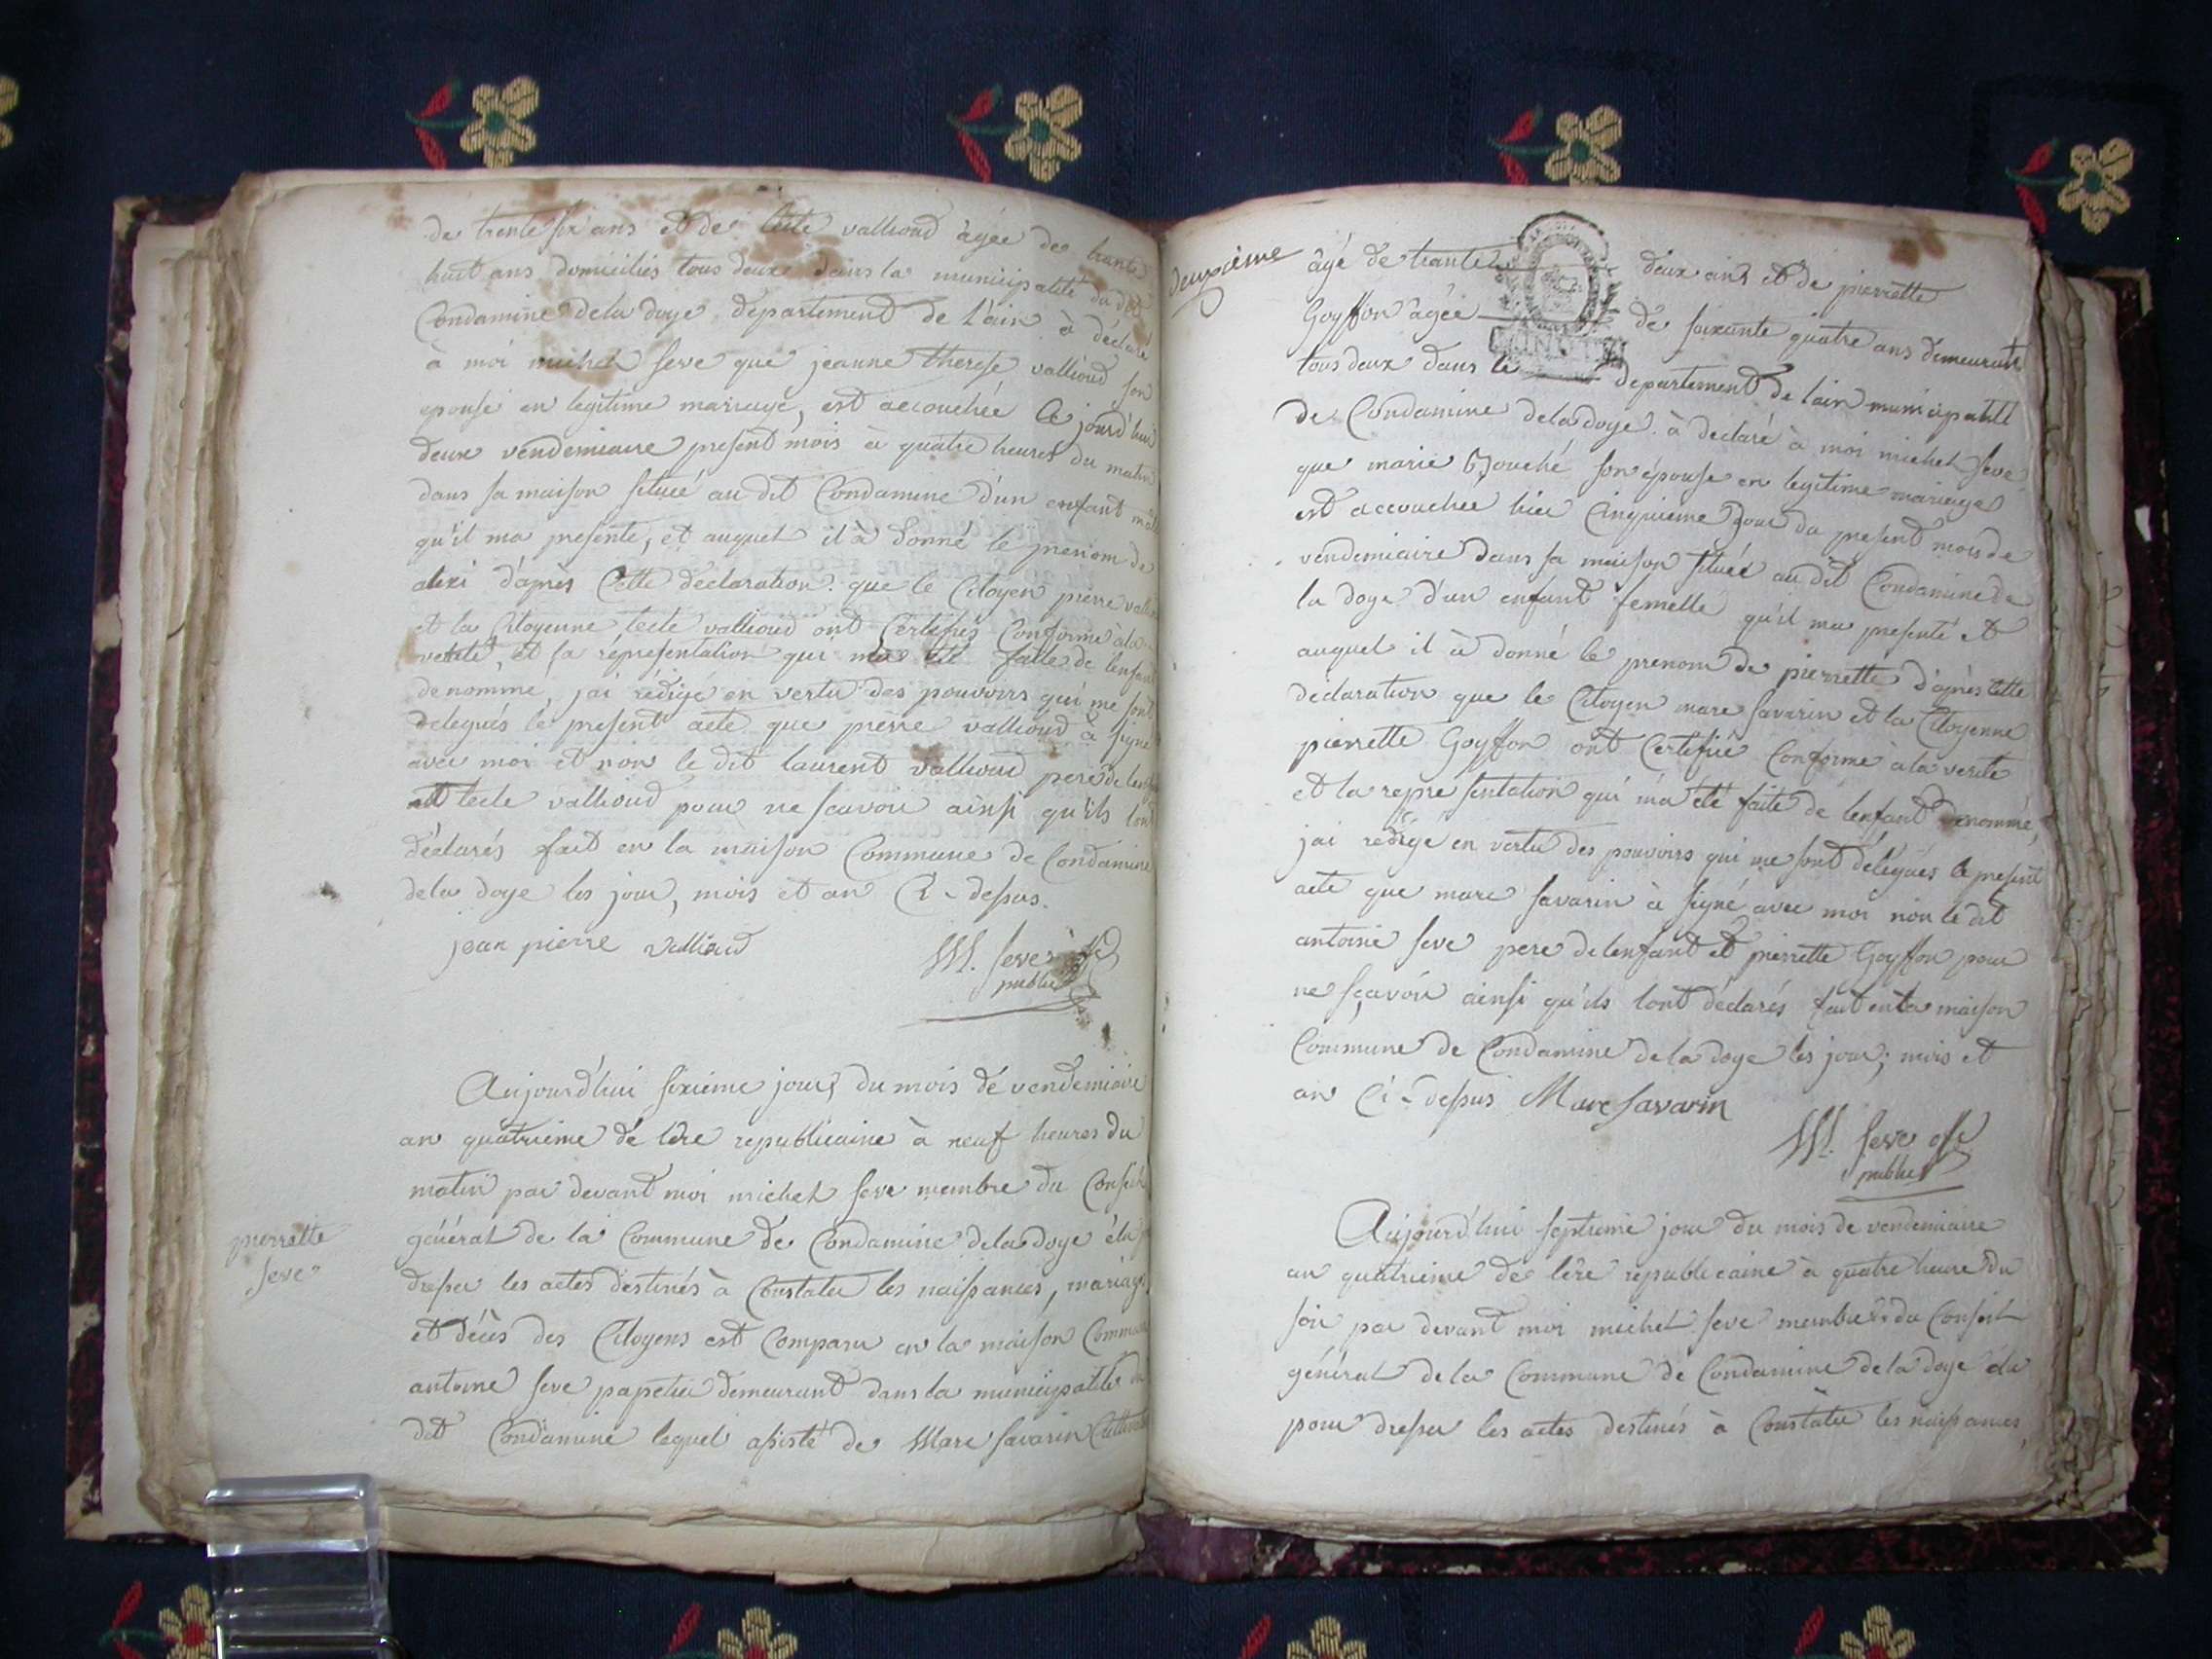 de trente six ans et de tecle vallioud âgée de trante
huit ans domiciliés tous deux dans la municipalité du dit
Condamine dela doye département de l'ain à déclaré
à moi michel seve que jeanne therese vallioud son
epouse en legitime mariage, est accouchée Ce jourd'huy
deux vendemiaire present mois à quatre heures du matin
dans sa maison située au dit Condamine d'un enfant male
qu'il ma presenté, et auquel il à donné le prenom de
alexi d'après Cette déclaration que le Citoyen pierre
et la Citoyenne tecle vallioud ont Certifiés Conforme à la
verité, et la répresentation qui ma été faite de l'enfant
denommé, jai rédigé en vertu des pouvoirs qui me sont
delegués le present acte que pierre vallioud à signé
avec moi et non le dit laurent vallioud pere de
et tecle vallioud pour ne scavoir ainsi qu'ils l'ont
déclarés fait en la maison Commune de Condamine
dela doye les jour, mois et an Ci-dessus.
jean pierre vallioud
M. seve off
public
Aujourd'hui sixieme jour du mois de vendemiaire
an quatrieme de l'ère republicaine à neuf heures du
matin par devant moi michel seve membre du Conseil
général de la Commune de Condamine dela doye élu
pierrette
seve
dresser les actes destinés à Constater les naissances, mariages
et décès des Citoyens est Comparu en la maison Commune
antoine seve papetier demeurant dans la municipalité du
dit Condamine lequel assisté de Marc savarin
deuxième
âgé de trante deux ans et de pierrette
Goyffon âgée de soixante quatre ans demeurant
tous deux dans le departement de lain municipalité
de Condamine dela doye à declaré à moi michel seve
que marie Bouché son épouse en legitime mariage
est accouchée hier Cinquieme jour du present mois de
vendemiaire dans sa maison située au dit Condamine de
la doye d'un enfant femelle qu'il ma presenté et
auquel il à donné le prenom de pierrette d'après Cette
déclaration que le Citoyen marc savarin et la Citoyenne
pierrette Goyffon ont Certifié Conforme à la verité
et la representation qui m'a été faite de lenfant denommé,
jai rédigé en vertu des pouvoirs qui me sont délégués le present
acte que marc savarin à signé avec moi non le dit
antoine seve pere de lenfant et pierrette Goyffon pour
ne sçavoir ainsi qu'ils l'ont déclarés fait en la maison
Commune de Condamine de la doye les jour, mois et
an Ci-dessus Marc Savarin
M. seve off
public
Aujourd'hui septieme jour du mois de vendemiaire
an quatrieme de l'ère republicaine à quatre heure du
soir par devant moi michel seve membre du Conseil
général de la Commune de Condamine de la doye élu
pour dresser les actes destinés à Constater les naissances,